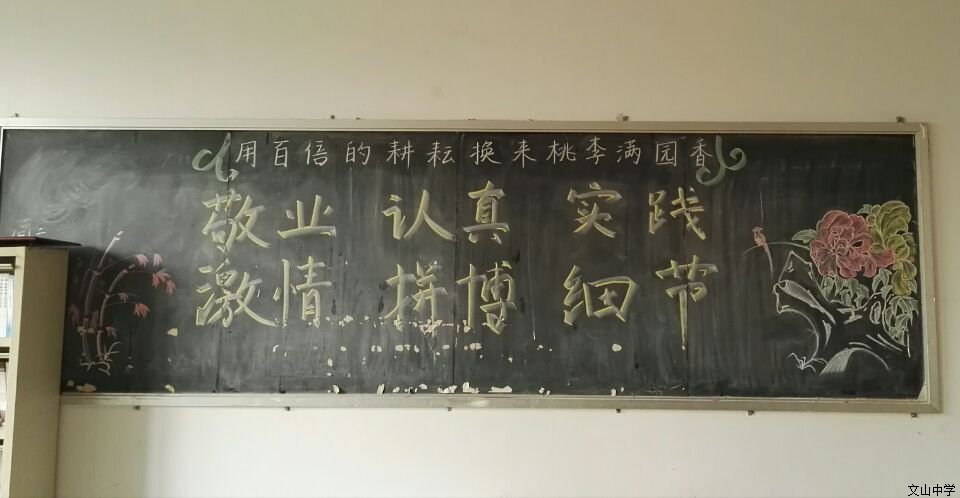 用百倍的耕耘换来桃李满园香
敬业 认真 实践
激情 拼博 细节
文山中学